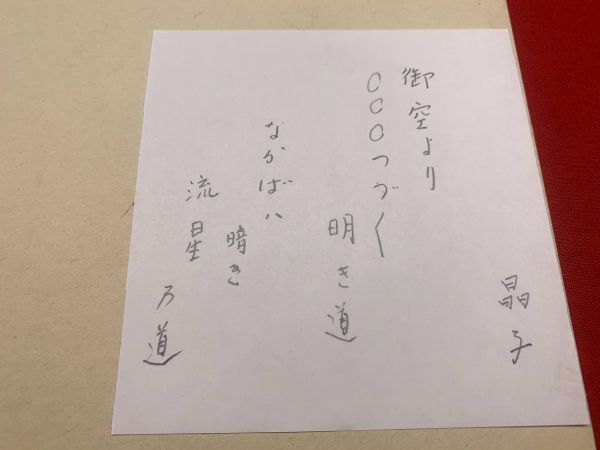 晶子
御空より
〇〇〇つづく
明き道
なかばハ
暗き
流星
乃道